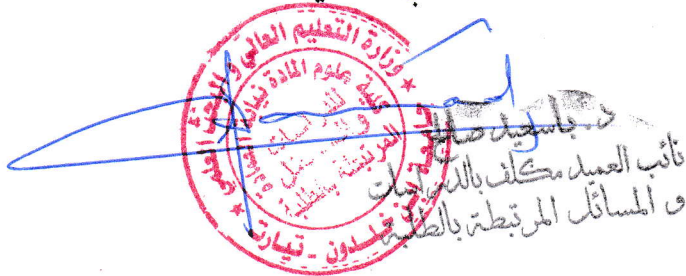 وزارة التعليم العالي و البحث العلمي
جامعة ابن خلدون - تيارت
كلية علوم المادة
نيابة العمادة
للدراسات
و المسائل
المرتبطة بالطلبة
د. باسعيد صالح
نائب العميد مكلف بالدراسات
و المسائل المرتبطة بالطلبة